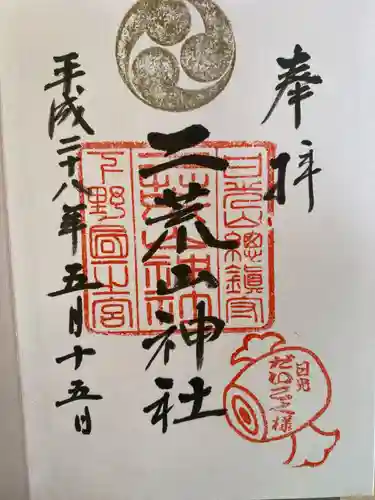 奉拝
日光山總鎮守
二荒山神社
二荒山神社
下野國一之宮
平成二十八年五月十五日
日光
だいこく様